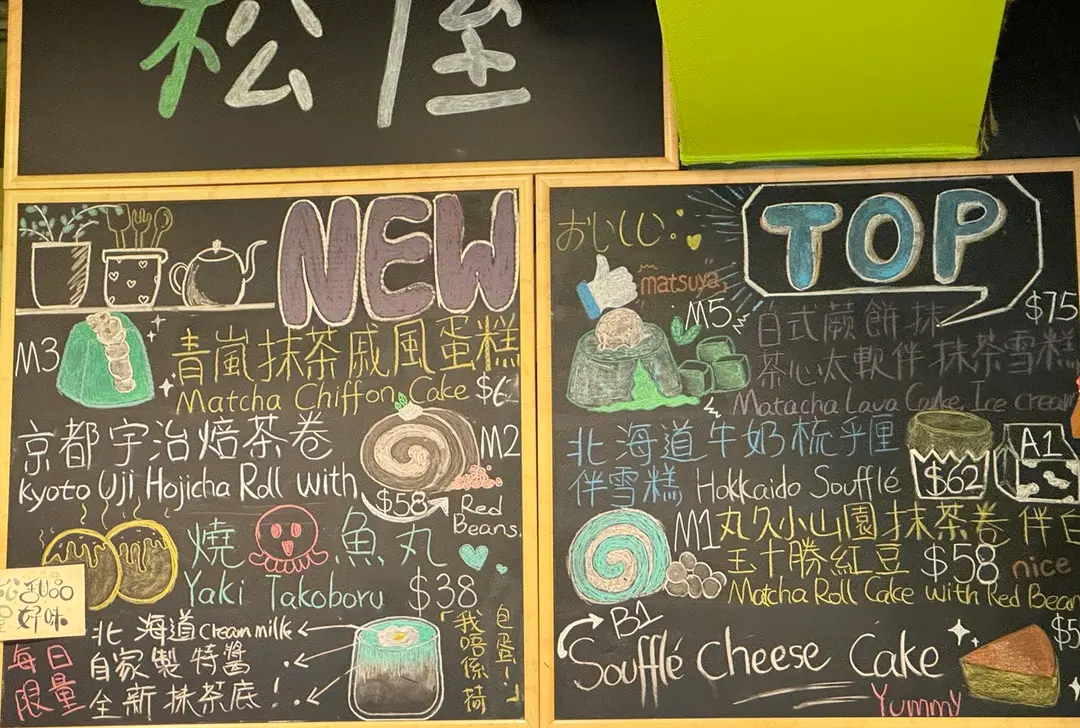 松屋
NEW
M3
青嵐抹茶戚風蛋糕
Matcha Chiffon Cake $6
京都宇治焙茶卷
M2
Kyoto Uji Hojicha Roll with
$58
Red
Beans.
燒
魚丸
Yaki Takoboru $38
好味
北海道cream milk
自家製特醬
全新抹茶底！
每日
限量
「我唔係荷
包蛋！」
おいしい
TOP
matsuya
M5
$75
日式蕨餅抹
茶心太軟伴抹茶雪糕
Matacha Lava Cake, Ice cream
北海道牛奶梳乎厘
伴雪糕 Hokkaido Soufflé
$62
A1
M1 丸久小山園抹茶卷 伴白
玉十勝紅豆 $58 nice
Matcha Roll Cake with Red Bean
B1
$5
Soufflé Cheese Cake
Yummy